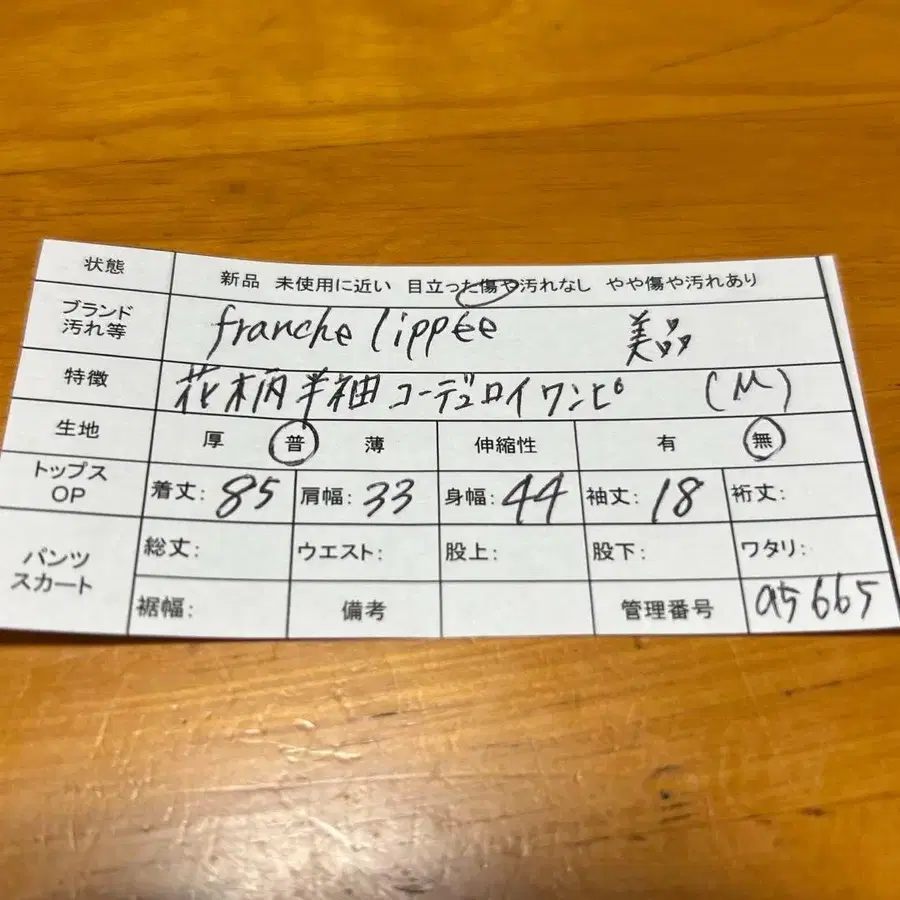 状態 新品 未使用に近い 目立った傷や汚れなし やや傷や汚れあり
ブランド 汚れ等 franche lippée 美品
特徴 花柄半袖コーデュロイワンピ (M)
生地 厚 普 薄 伸縮性 有 無
トップス OP 着丈: 85 肩幅: 33 身幅: 44 袖丈: 18 裄丈:
パンツ スカート 総丈: ウエスト: 股上: 股下: ワタリ:
裾幅: 備考 管理番号 a5665